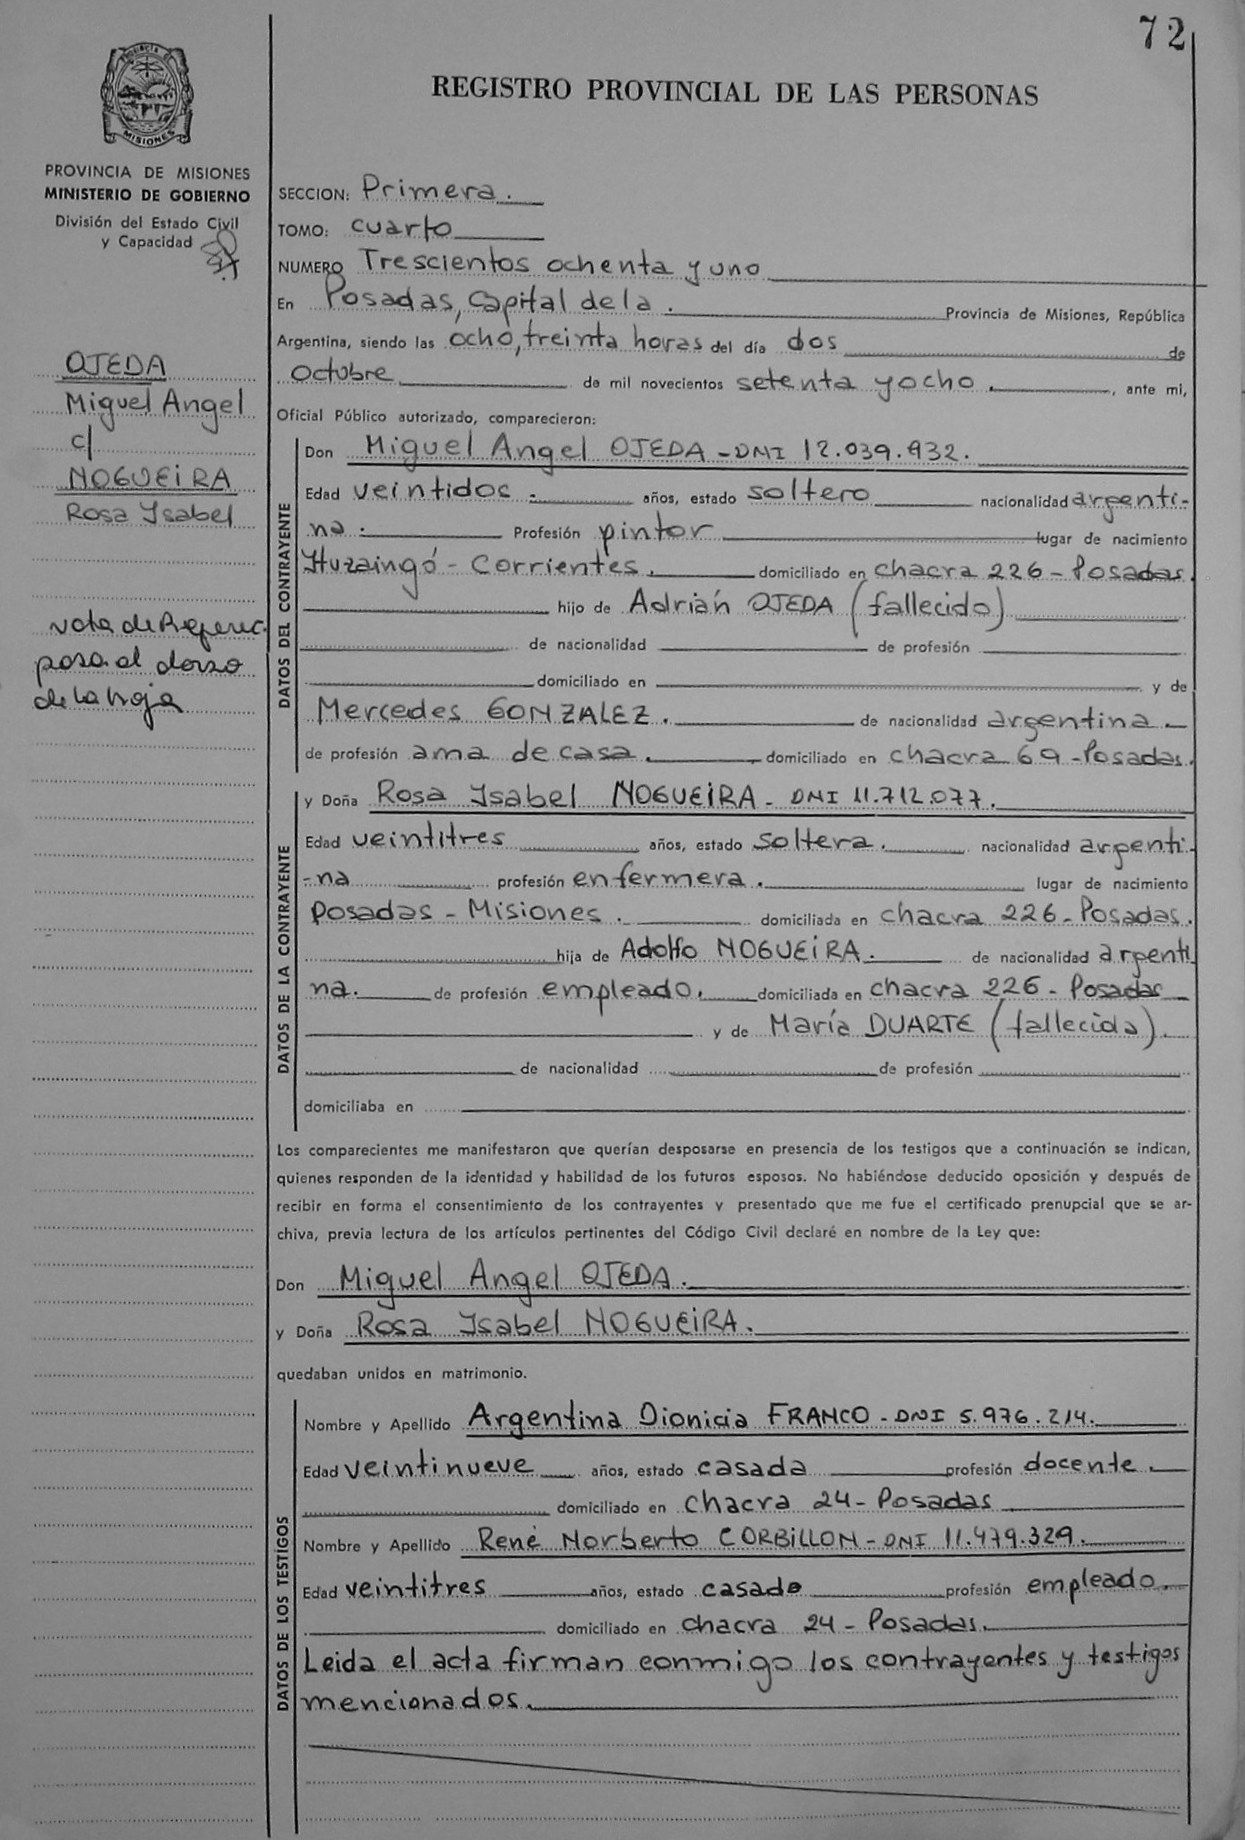 72
MISIONES
PROVINCIA DE MISIONES
MINISTERIO DE GOBIERNO
División del Estado Civil
y Capacidad
OJEDA
Miguel Angel
c/
NOGUEiRA
Rosa Ysabel
nota de Referec.
pasa al dorso
de la hoja
REGISTRO PROVINCIAL DE LAS PERSONAS
SECCION: Primera.
TOMO: cuarto
NUMERO Trescientos ochenta y uno
En Posadas, Capital de la . Provincia de Misiones, República
Argentina, siendo las ocho, treinta horas del día dos de
octubre de mil novecientos setenta y ocho . , ante mi,
Oficial Público autorizado, comparecieron:
DATOS DEL CONTRAYENTE
Don Miguel Angel OJEDA - DNI 12.039.932.
Edad veintidos . años, estado soltero nacionalidad argenti-
na . Profesión pintor lugar de nacimiento
Ytuzaingó - Corrientes . domiciliado en chacra 226 - Posadas.
hijo de Adrián OJEDA (fallecido)
de nacionalidad de profesión
domiciliado en y de
Mercedes GONZALEZ . de nacionalidad argentina .
de profesión ama de casa . domiciliado en chacra 69 - Posadas.
DATOS DE LA CONTRAYENTE
y Doña Rosa Ysabel NOGUEiRA - DNI 11.712.077.
Edad veintitres años, estado soltera . nacionalidad argenti-
-na profesión enfermera . lugar de nacimiento
Posadas - Misiones . domiciliada en chacra 226 - Posadas.
hija de Adolfo NOGUEiRA . de nacionalidad argenti
na. de profesión empleado . domiciliada en chacra 226 - Posadas
y de María DUARTE (fallecida).
de nacionalidad de profesión
domiciliaba en
Los comparecientes me manifestaron que querían desposarse en presencia de los testigos que a continuación se indican,
quienes responden de la identidad y habilidad de los futuros esposos. No habiéndose deducido oposición y después de
recibir en forma el consentimiento de los contrayentes y presentado que me fue el certificado prenupcial que se ar-
chiva, previa lectura de los artículos pertinentes del Código Civil declaré en nombre de la Ley que:
Don Miguel Angel OJEDA .
y Doña Rosa Ysabel NOGUEiRA .
quedaban unidos en matrimonio.
DATOS DE LOS TESTIGOS
Nombre y Apellido Argentina Dionicia FRANCO - DNI 5.976.214.
Edad veintinueve años, estado casada profesión docente .
domiciliado en chacra 24 - Posadas
Nombre y Apellido René Norberto CORBiLLON - DNI 11.479.329.
Edad veintitres años, estado casado profesión empleado .
domiciliado en chacra 24 - Posadas.
Leida el acta firman conmigo los contrayentes y testigos
mencionados.